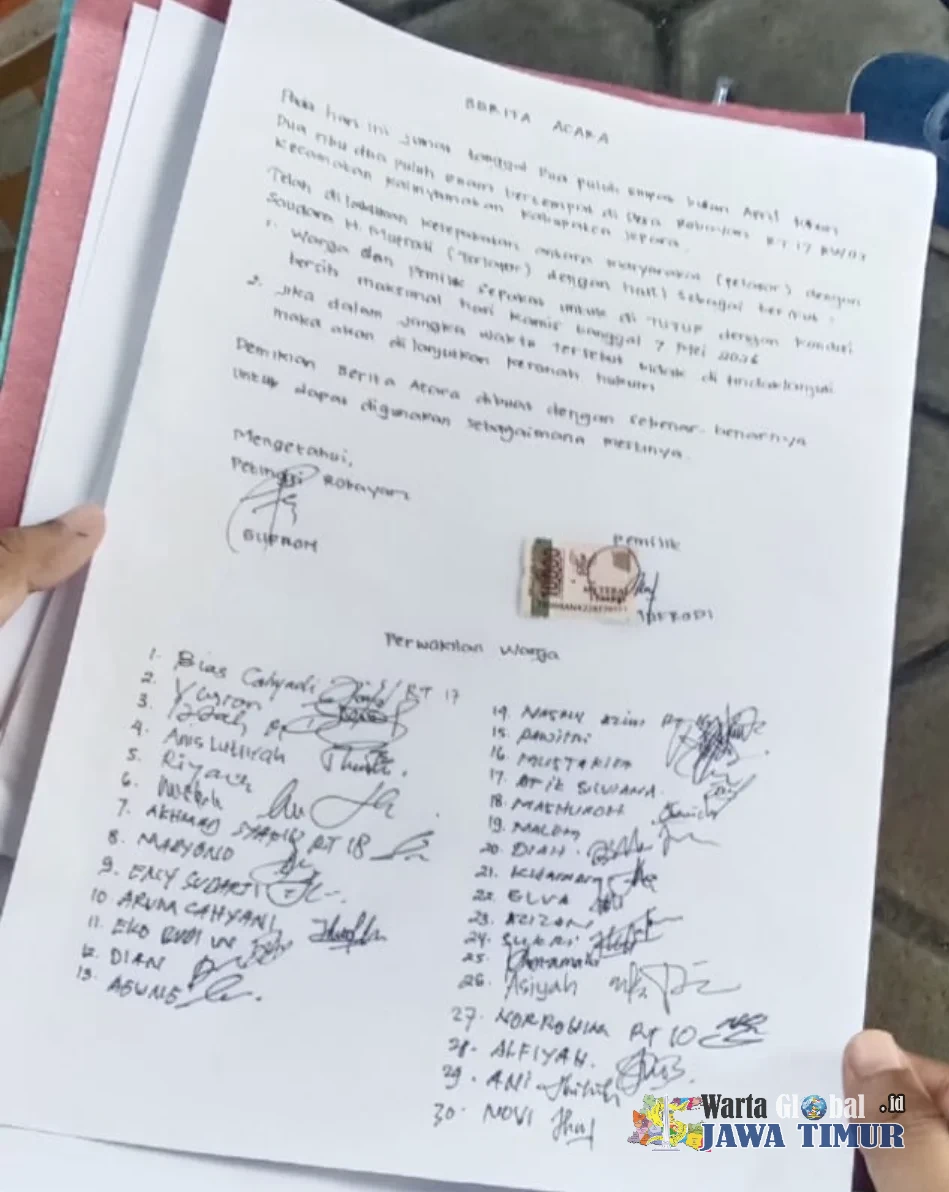 BERITA ACARA
Pada hari ini Jumat tanggal Dua puluh empat bulan April tahun
Dua ribu dua puluh enam bertempat di Desa Robayan RT 17 RW 03
Kecamatan Kalinyamatan Kabupaten Jepara.
Telah dilakukan kesepakatan antara masyarakat (pelapor) dengan
Saudara H. Mufrodi (Terlapor) dengan hasil sebagai berikut :
1. Warga dan pemilik sepakat untuk di TUTUP dengan kondisi
bersih maksimal hari Kamis tanggal 7 Mei 2026
2. Jika dalam jangka waktu tersebut tidak di tindaklanjuti
maka akan di lanjutkan keranah hukum
Demikian Berita Acara dibuat dengan sebenar-benarnya
untuk dapat digunakan sebagaimana mestinya.
Mengetahui,
Petinggi Robayan
Pemilik
10000
METERAI
TEMPEL
GUFRON
Perwakilan Warga
1. Bias Cahyadi RT 17
2. Yusron
3.
4. Anis Lutfiah
5.
6.
7. AKHMAD RT 18
8. MARYONO
9. ENY SUDARTI
10. ARUM CAHYANI
11. EKO BUDI W
12. DIAN
13. AGUNG
14. RT
15.
16.
17. ATIK SILVIANA
18. MASHUROH
19.
20. DIAH
21.
22. ELVA
23. AZIZAH
24. SUKRI
25.
26. Asiyah
27. NORROHIM RT 10
28. ALFIYAH.
29. ANI
30. NOVI
Warta Global .id
JAWA TIMUR